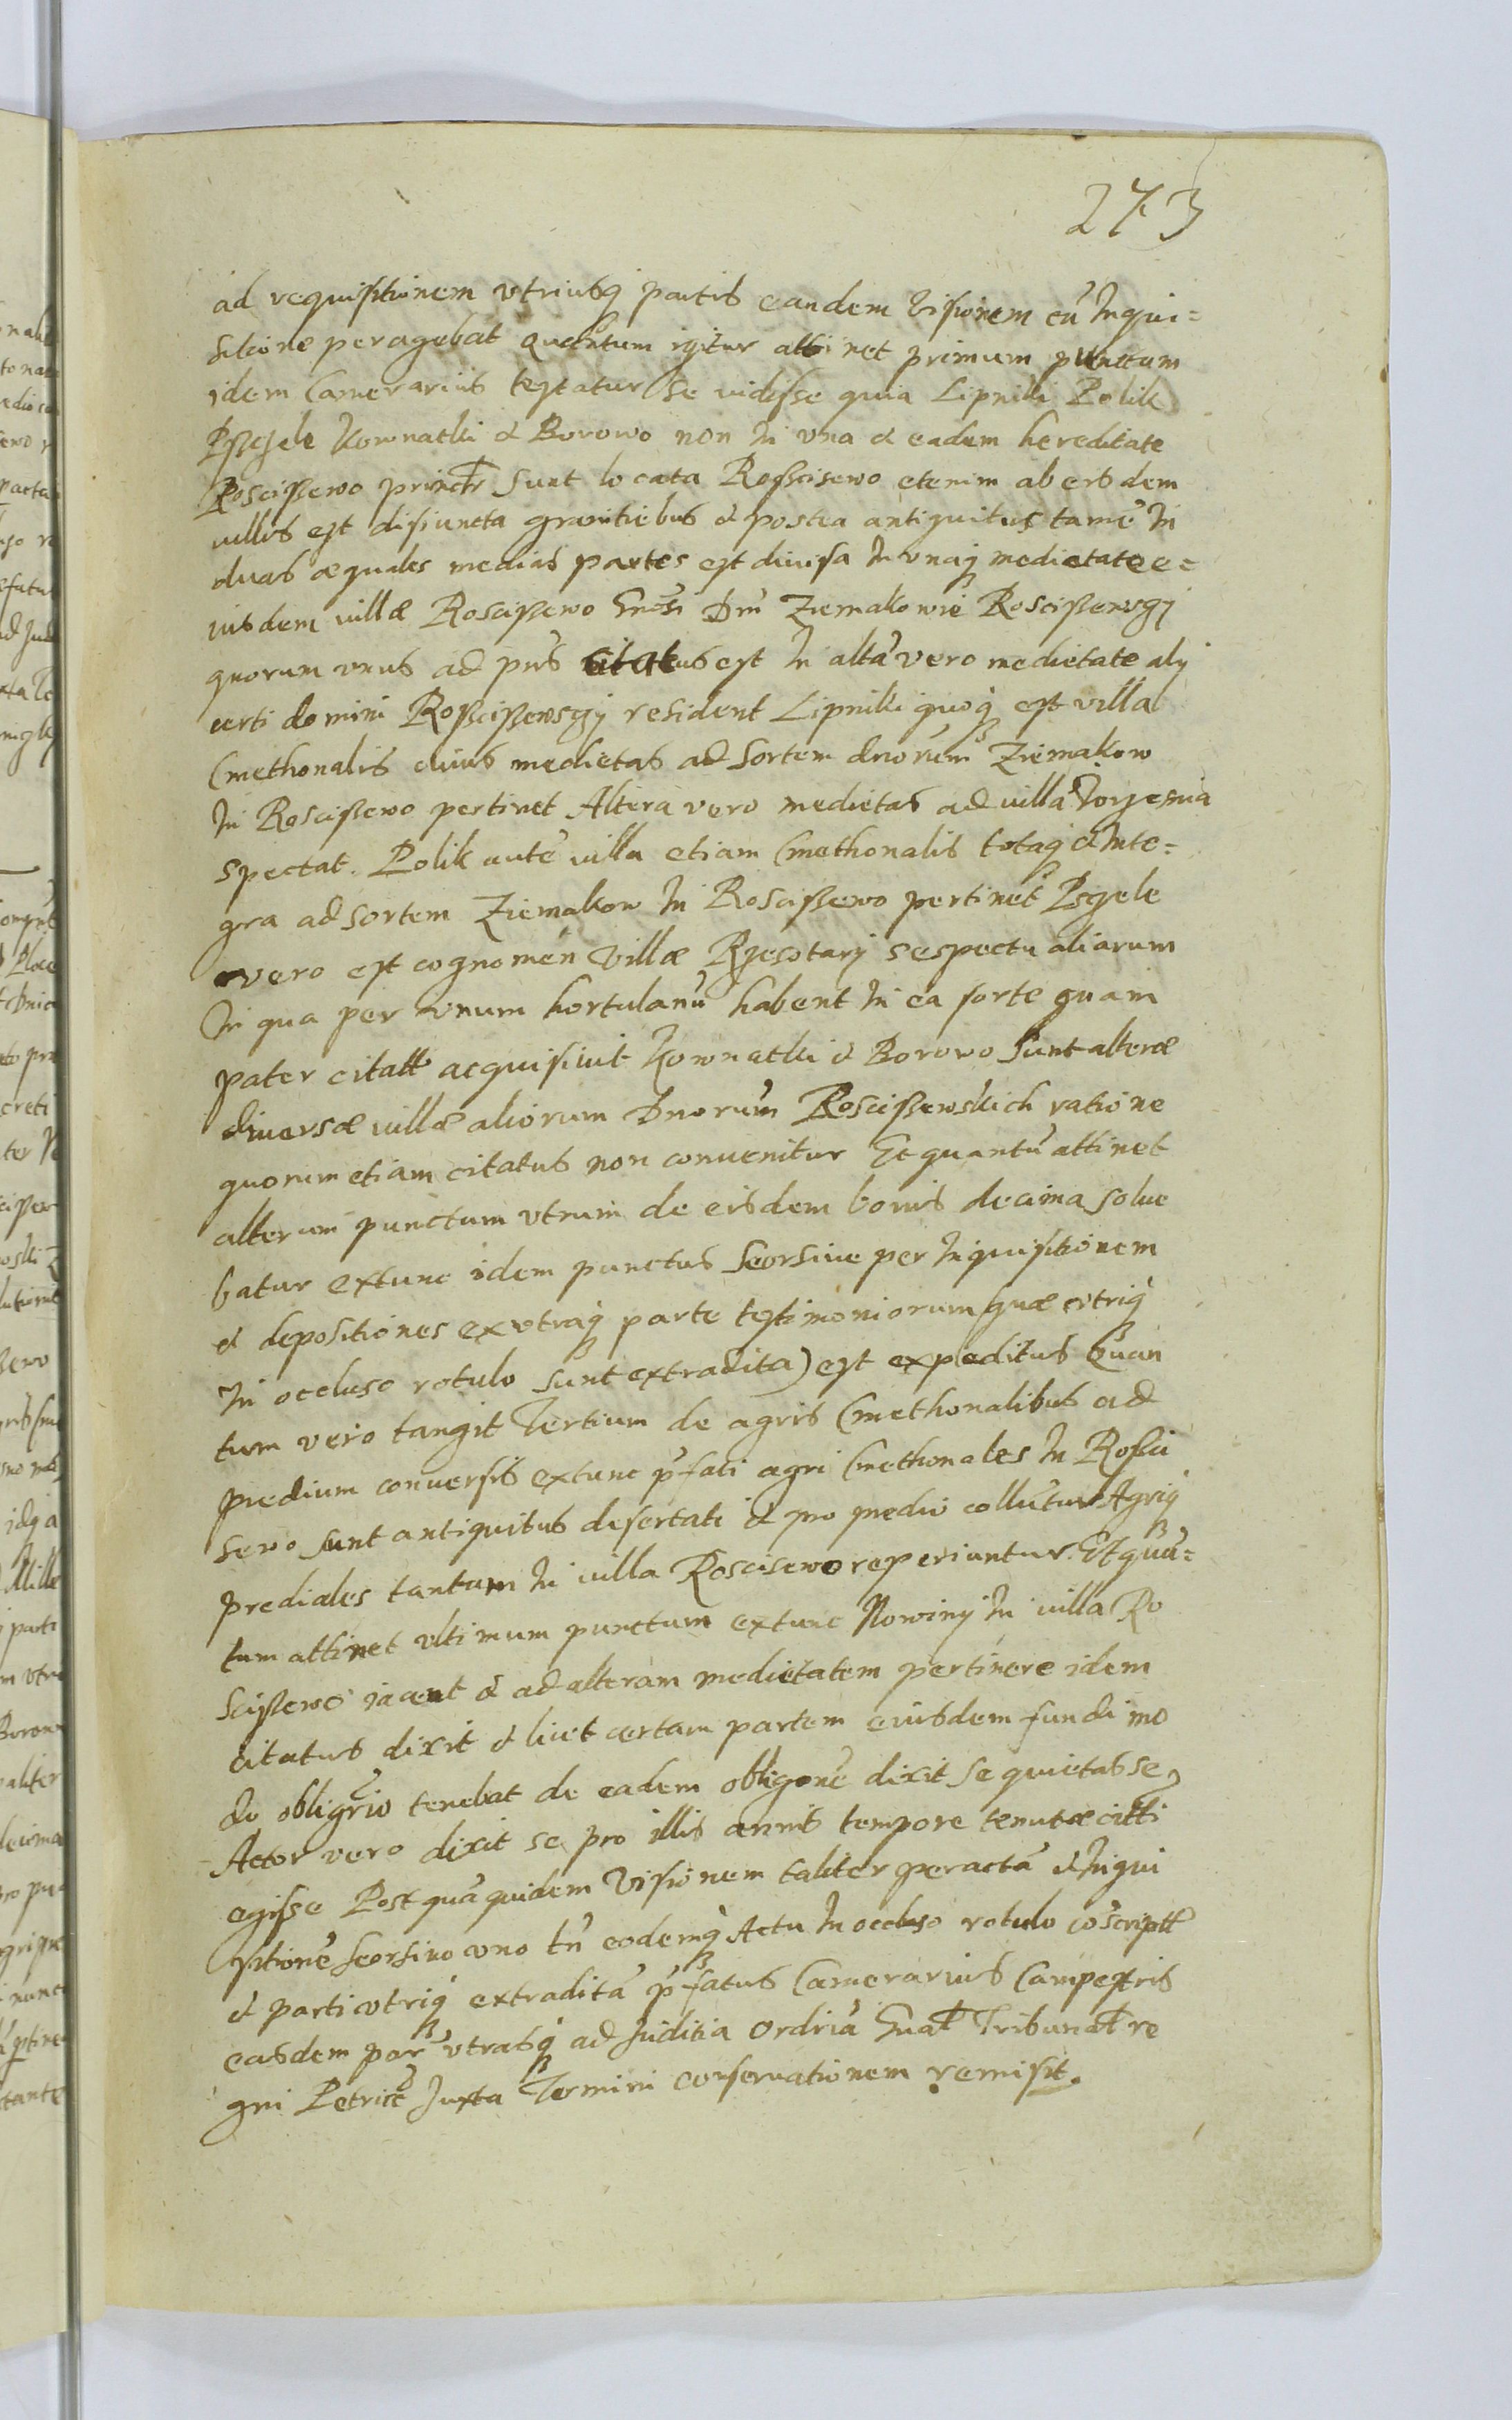 273
ad requisitionem vtriusq partis eandem visionem cũ Inqui=
sitione peragebat Quantum igitur attinet primum punctum
idem Camerarius testatur se vidisse quia Lipniki Polik
Pszczele Kownatki & Borowo non in vna & eadem hereditate
Rosciszewo sunt locata Rosscisewo etenim ab eis dem
villis est disiuncta granitiebus & postea antiquitus tamẽ In
duas æquales medias partes est diuisa In vnaq medietate e=
iusdem villæ Rosciszewo Gnosi Dni Ziemakowie Rosciszewsgy
quorum vnus ad pns citatus est In altã vero medietate aly
certi domini Rossciszewsgy resident Lipniki quoq est villa
Cmethonalis cuius medietas ad sortem dnorum Ziemakow
In Rosciszewo pertinet Altera vero medietas ad villã
spectat. Polik autẽ villa etiam Cmethonalis totaq & Inte=
gra ad sortem Ziemakow In Rosciszewo pertinet Psczele
vero est cognomen villæ Rzesotary respectu aliarum
In qua per vnum hortulanũ habent In ea sorte quam
pater citatt acquisiuit Kownatki & Borowo sunt alteræ
diuersæ villæ aliorum Dnorum Rosciszewskich ratione
quorum etiam citatus non conuenitur Et quantũ attinet
alterum punctum vtrum de eisdem bonis decima solue
batur extunc idem punctus seorsiue per Inquisitionem
& depositiones ex vtraq parte testimoniorum (quæ vtriq
In occluso rotulo sunt extradita) est expeditus Quan
tum vero tangit Tertium de agris Cmethonalibus ad
predium conuersis extunc pfati agri Cmethonales In Rossci
sewo sunt antiquitus desertati & pro predio collutur Agriq
prediales tantum In villa Roscisewo reperiuntur. Et quã=
tum attinet vltimum punctum extunc Nowiny In villa Ro
sciszewo iacent & ad alteram medietatem pertinere idem
citatus dixit & licet certam partem eiusdem fundi mo
do obligrio tenebat de eadem obligone dixit se quietasse,
Actor vero dixit se pro illis annis tempore tenutæ citti
egisse Post quã quidem visionem taliter peractã & Inqui
sitionẽ seorsiuo vno tñ eodemq Actu In occluso rotulo coscriptt
& parti vtriq extraditã pfatus Camerarius Campestris
easdem par vtrasq ad Juditia Ordria Gnat Tribunat re
gni Petricẽ Juxta Termini conseruationem remisit.